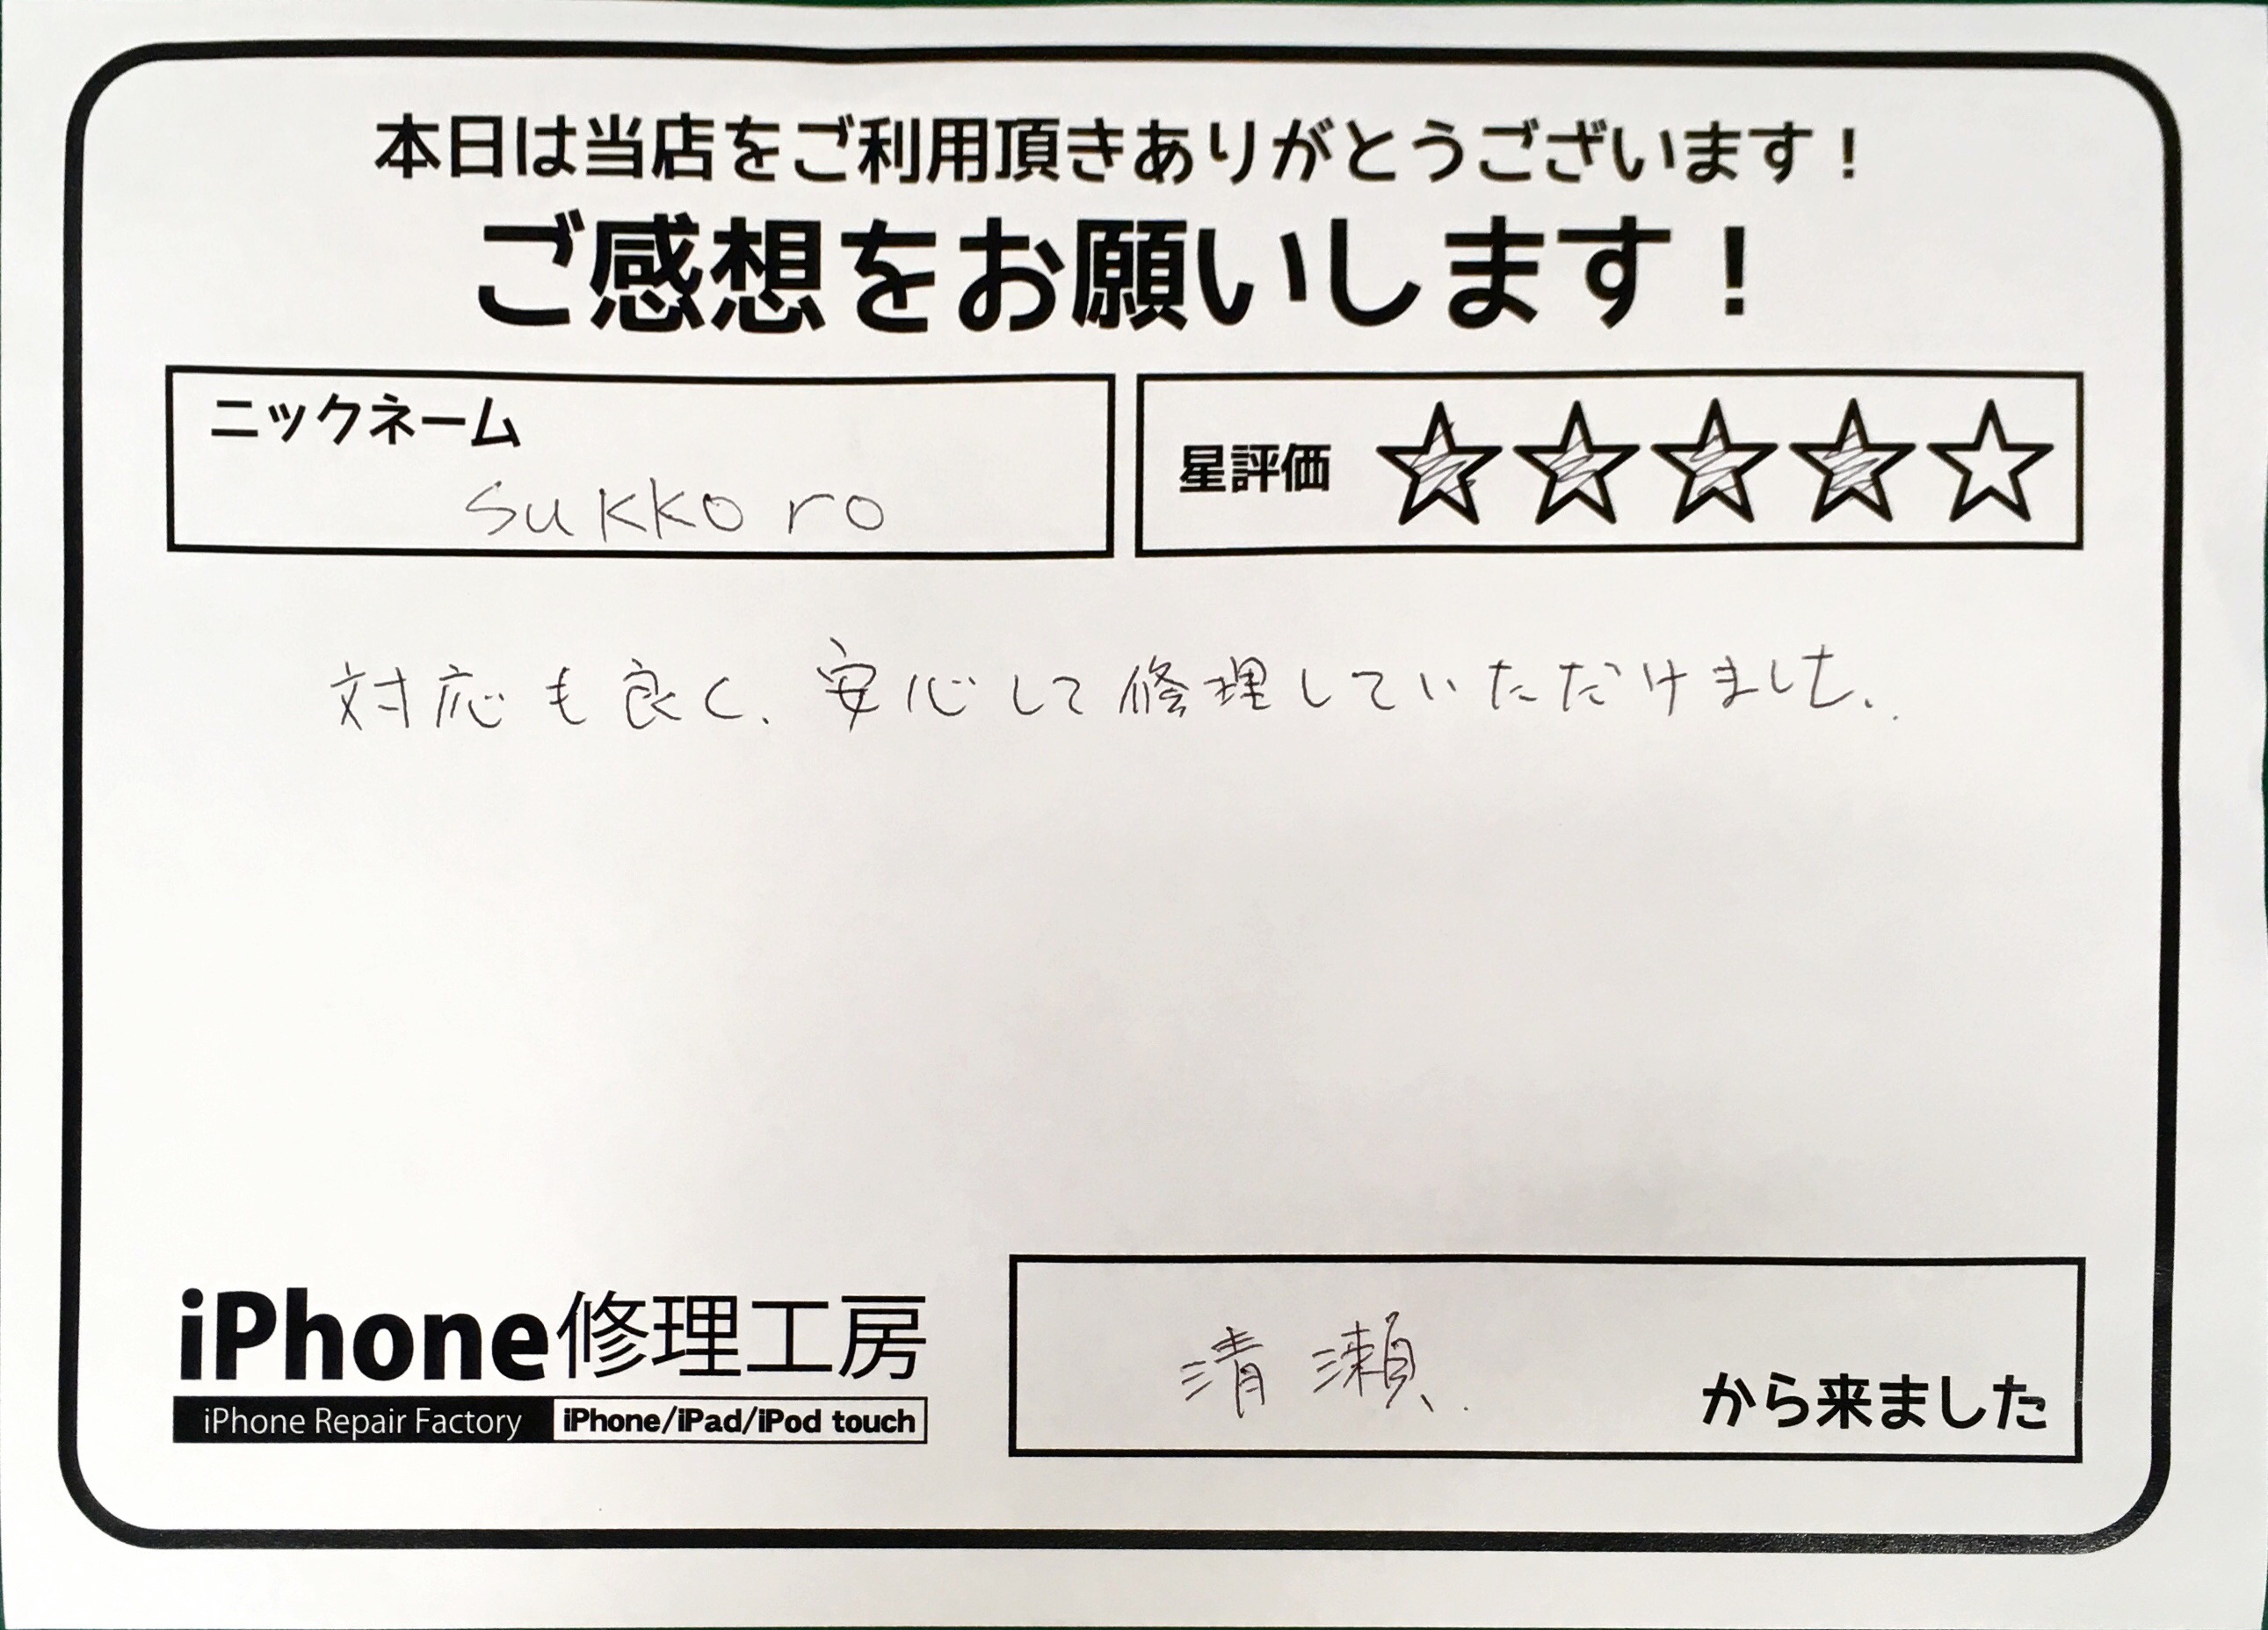 本日は当店をご利用頂きありがとうございます！
ご感想をお願いします！
ニックネーム
sukkoro
星評価 ★★★★☆
対応も良く、安心して修理していただけました。
iPhone修理工房
iPhone Repair Factory iPhone/iPad/iPod touch
清瀬 から来ました